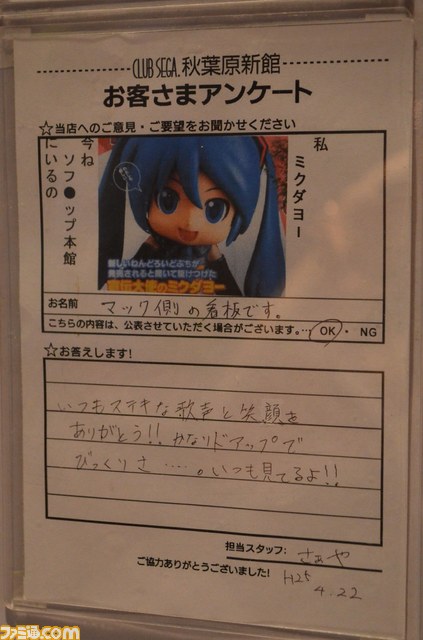 CLUB SEGA 秋葉原新館
お客さまアンケート
☆当店へのご意見・ご要望をお聞かせください
私
ミクダヨー
今ね
ソフ●ップ本館
にいるの
新しいねんどろいどぷちが
発売されると聞いて駆けつけた
宣伝大使のミクダヨー
お名前 マック側の看板です。
こちらの内容は、公表させていただく場合がございます。…OK・NG
☆お答えします!
いつもステキな歌声と笑顔を
ありがとう!! かなりドアップで
びっくりさ……。いつも見てるよ!!
担当スタッフ: さぁや
ご協力ありがとうございました!
H25
4.22
ファミ通.com